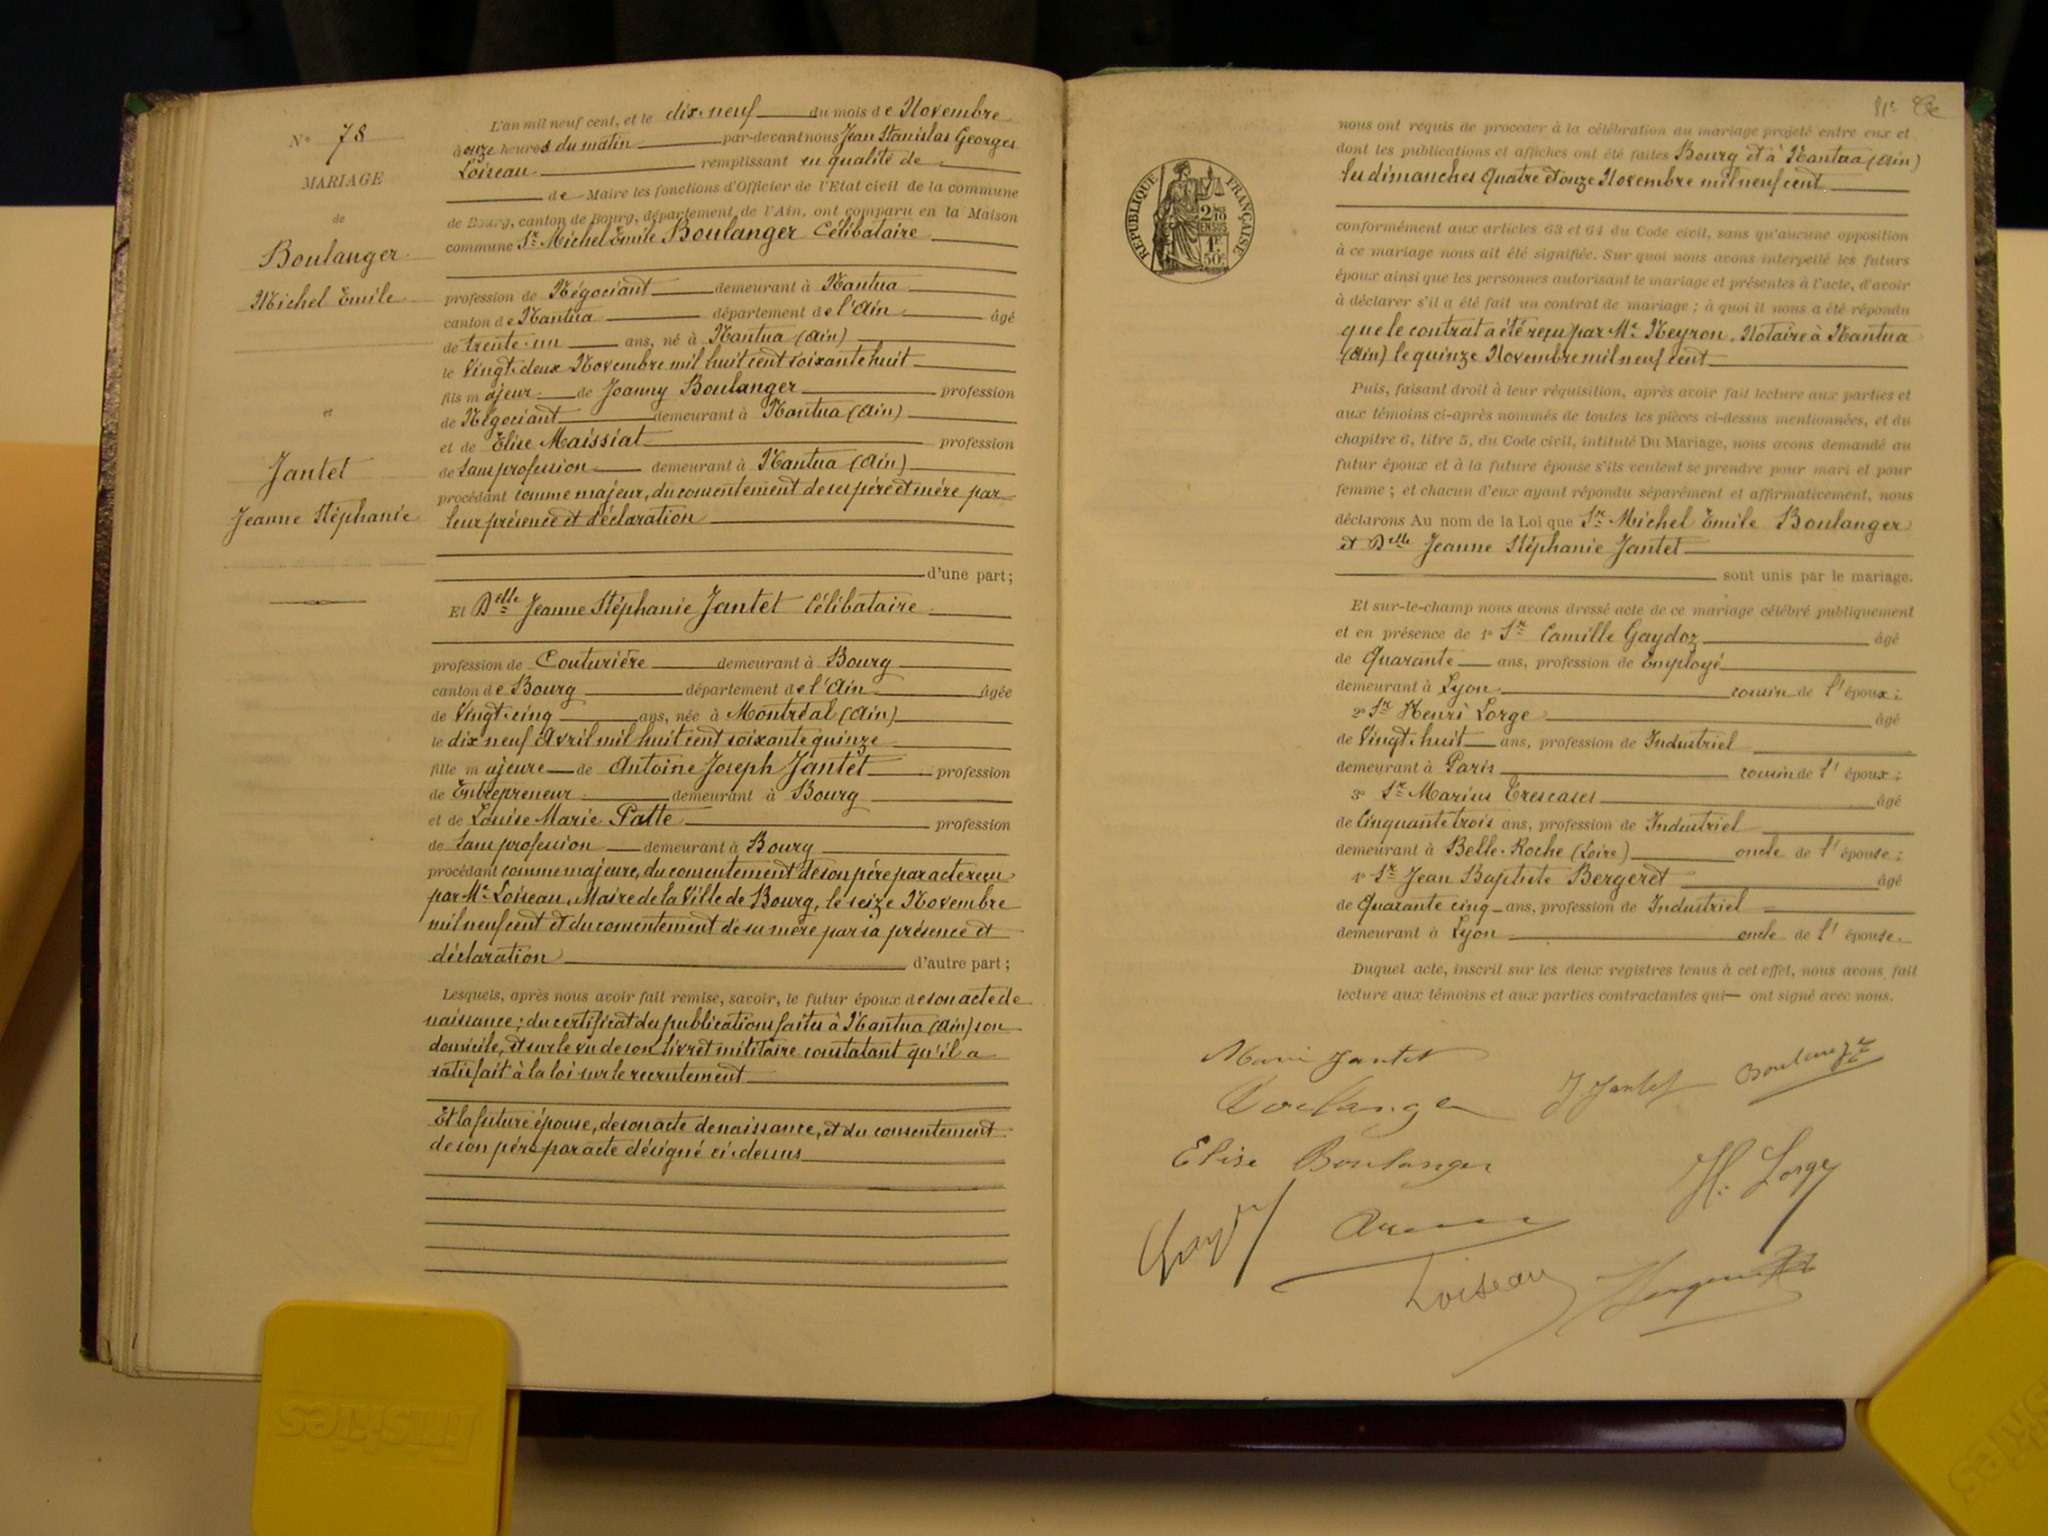 N° 78
MARIAGE
de
Boulanger
Michel Emile
et
Jantet
Jeanne Stéphanie
L'an mil neuf cent, et le dix-neuf du mois de Novembre
à onze heures du matin par-devant nous Jean Stanislas Georges
Loiseau remplissant en qualité de
de Maire les fonctions d'Officier de l'Etat civil de la commune
de Bourg, canton de Bourg, département de l'Ain, ont comparu en la Maison
commune Sr Michel Emile Boulanger Célibataire
profession de Négociant demeurant à Nantua
canton de Nantua département de l'Ain âgé
de trente-un ans, né à Nantua (Ain)
le Vingt-deux Novembre mil huit cent soixante huit
fils majeur de Joanny Boulanger profession
de Négociant demeurant à Nantua (Ain)
et de Elise Maissiat profession
de Sans profession demeurant à Nantua (Ain)
procédant comme majeur, du consentement de ses père et mère par
leur présence et déclaration
d'une part;
Et Delle Jeanne Stéphanie Jantet Célibataire
profession de Couturière demeurant à Bourg
canton de Bourg département de l'Ain âgée
de Vingt-cinq ans, née à Montréal (Ain)
le dix neuf Avril mil huit cent soixante quinze
fille majeure de Antoine Joseph Jantet profession
de Entrepreneur demeurant à Bourg
et de Louise Marie Patte profession
de Sans profession demeurant à Bourg
procédant comme majeure, du consentement de son père par acte reçu
par Me Loiseau, Maire de la Ville de Bourg, le seize Novembre
mil neuf cent et du consentement de sa mère par sa présence et
déclaration d'autre part;
Lesquels, après nous avoir fait remise, savoir, le futur époux de son acte de
naissance; du certificat des publications faites à Nantua (Ain) son
domicile, et sur le vu de son livret militaire constatant qu'il a
satisfait à la loi sur le recrutement
Et la future épouse, de son acte de naissance, et du consentement
de son père par acte désigné ci-dessus
81e
RÉPUBLIQUE FRANÇAISE
2/10 EN SUS
1F 50c
nous ont requis de procéder à la célébration du mariage projeté entre eux et
dont les publications et affiches ont été faites Bourg et à Nantua (Ain)
les dimanches Quatre et onze Novembre mil neuf cent
conformément aux articles 63 et 64 du Code civil, sans qu'aucune opposition
à ce mariage nous ait été signifiée. Sur quoi nous avons interpellé les futurs
époux ainsi que les personnes autorisant le mariage et présentes à l'acte, d'avoir
à déclarer s'il a été fait un contrat de mariage; à quoi il nous a été répondu
que le contrat a été reçu par Me Neyron, Notaire à Nantua
(Ain) le quinze Novembre mil neuf cent
Puis, faisant droit à leur réquisition, après avoir fait lecture aux parties et
aux témoins ci-après nommés de toutes les pièces ci-dessus mentionnées, et du
chapitre 6, titre 5, du Code civil, intitulé Du Mariage, nous avons demandé au
futur époux et à la future épouse s'ils veulent se prendre pour mari et pour
femme; et chacun d'eux ayant répondu séparément et affirmativement, nous
déclarons Au nom de la Loi que Sr Michel Emile Boulanger
et Delle Jeanne Stéphanie Jantet
sont unis par le mariage.
Et sur-le-champ nous avons dressé acte de ce mariage célébré publiquement
et en présence de 1° Sr Camille Gaydoz âgé
de Quarante ans, profession de Employé
demeurant à Lyon cousin de l'époux;
2° Sr Henri Lorge âgé
de Vingt-huit ans, profession de Industriel
demeurant à Paris cousin de l'époux;
3° Sr Marius Crescases âgé
de Cinquante trois ans, profession de Industriel
demeurant à Belle-Roche (Loire) oncle de l'épouse;
4° Sr Jean Baptiste Bergeret âgé
de Quarante cinq ans, profession de Industriel
demeurant à Lyon oncle de l'épouse.
Duquel acte, inscrit sur les deux registres tenus à cet effet, nous avons fait
lecture aux témoins et aux parties contractantes qui ont signé avec nous.
Marie Jantet
Boulanger J. Jantet Boulanger
Elise Boulanger H. Lorge
Loiseau